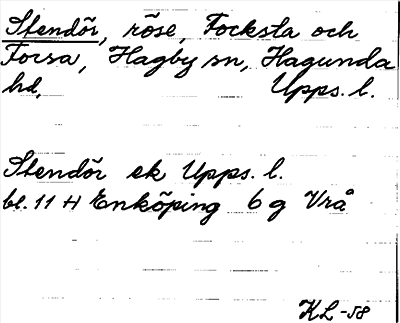 Stendör, röse, Focksta och
Forsa, Hagby sn, Hagunda
hd, Upps. l.
Stendör ek Upps. l.
bl. 11 H Enköping 6 g Vrå
KL-58